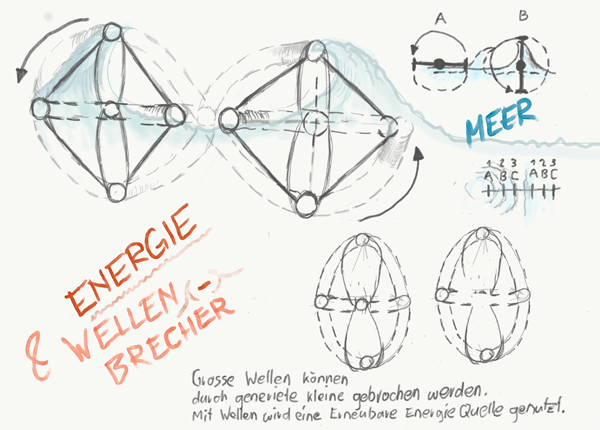 A B
MEER
1 2 3 1 2 3
A B C A B C
ENERGIE
& WELLEN-
BRECHER
Grosse Wellen können
durch generiete kleine gebrochen werden.
Mit Wellen wird eine Erneubare Energie Quelle genutzt.